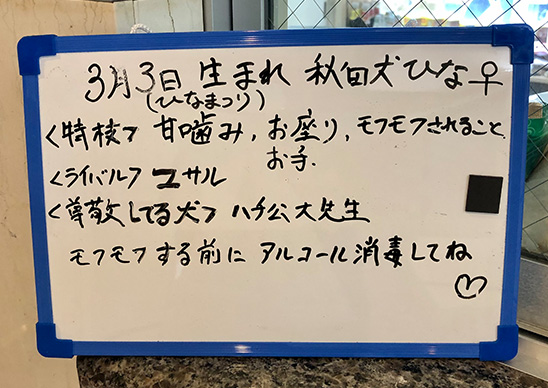 3月3日 生まれ 秋田犬ひな♀
(ひなまつり)
<特技> 甘噛み, お座り, モフモフされること
お手.
<ライバル> ユサル
<尊敬してる犬> ハチ公大先生
モフモフする前に アルコール消毒してね
♡